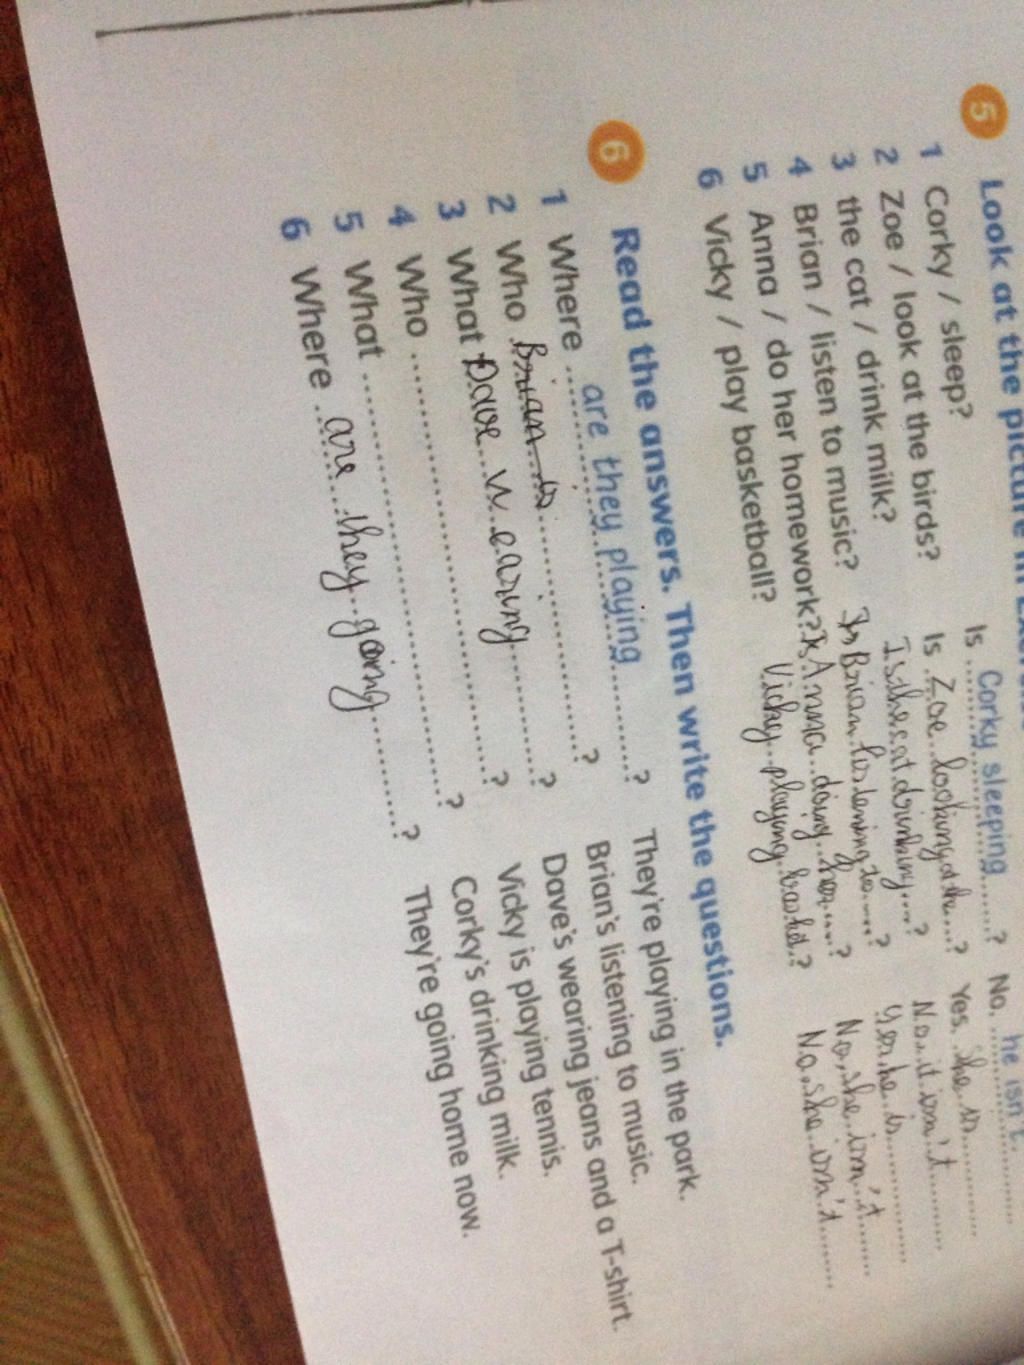 5 Look at the picture in
1 Corky / sleep? Is Corky sleeping ? No, he isn't.
2 Zoe / look at the birds? Is Zoe looking at the ? Yes, she is
3 the cat / drink milk? Is the cat drinking ? No it isn't
4 Brian / listen to music? Is Brian listening to ? Yes he is
5 Anna / do her homework? Is Anna doing her ? No, she isn't
6 Vicky / play basketball? Vicky playing basket ? No, she isn't
6 Read the answers. Then write the questions.
1 Where are they playing ? They're playing in the park.
2 Who Brian is ? Brian's listening to music.
3 What Dave wearing ? Dave's wearing jeans and a T-shirt.
4 Who ? Vicky is playing tennis.
5 What ? Corky's drinking milk.
6 Where are they going ? They're going home now.